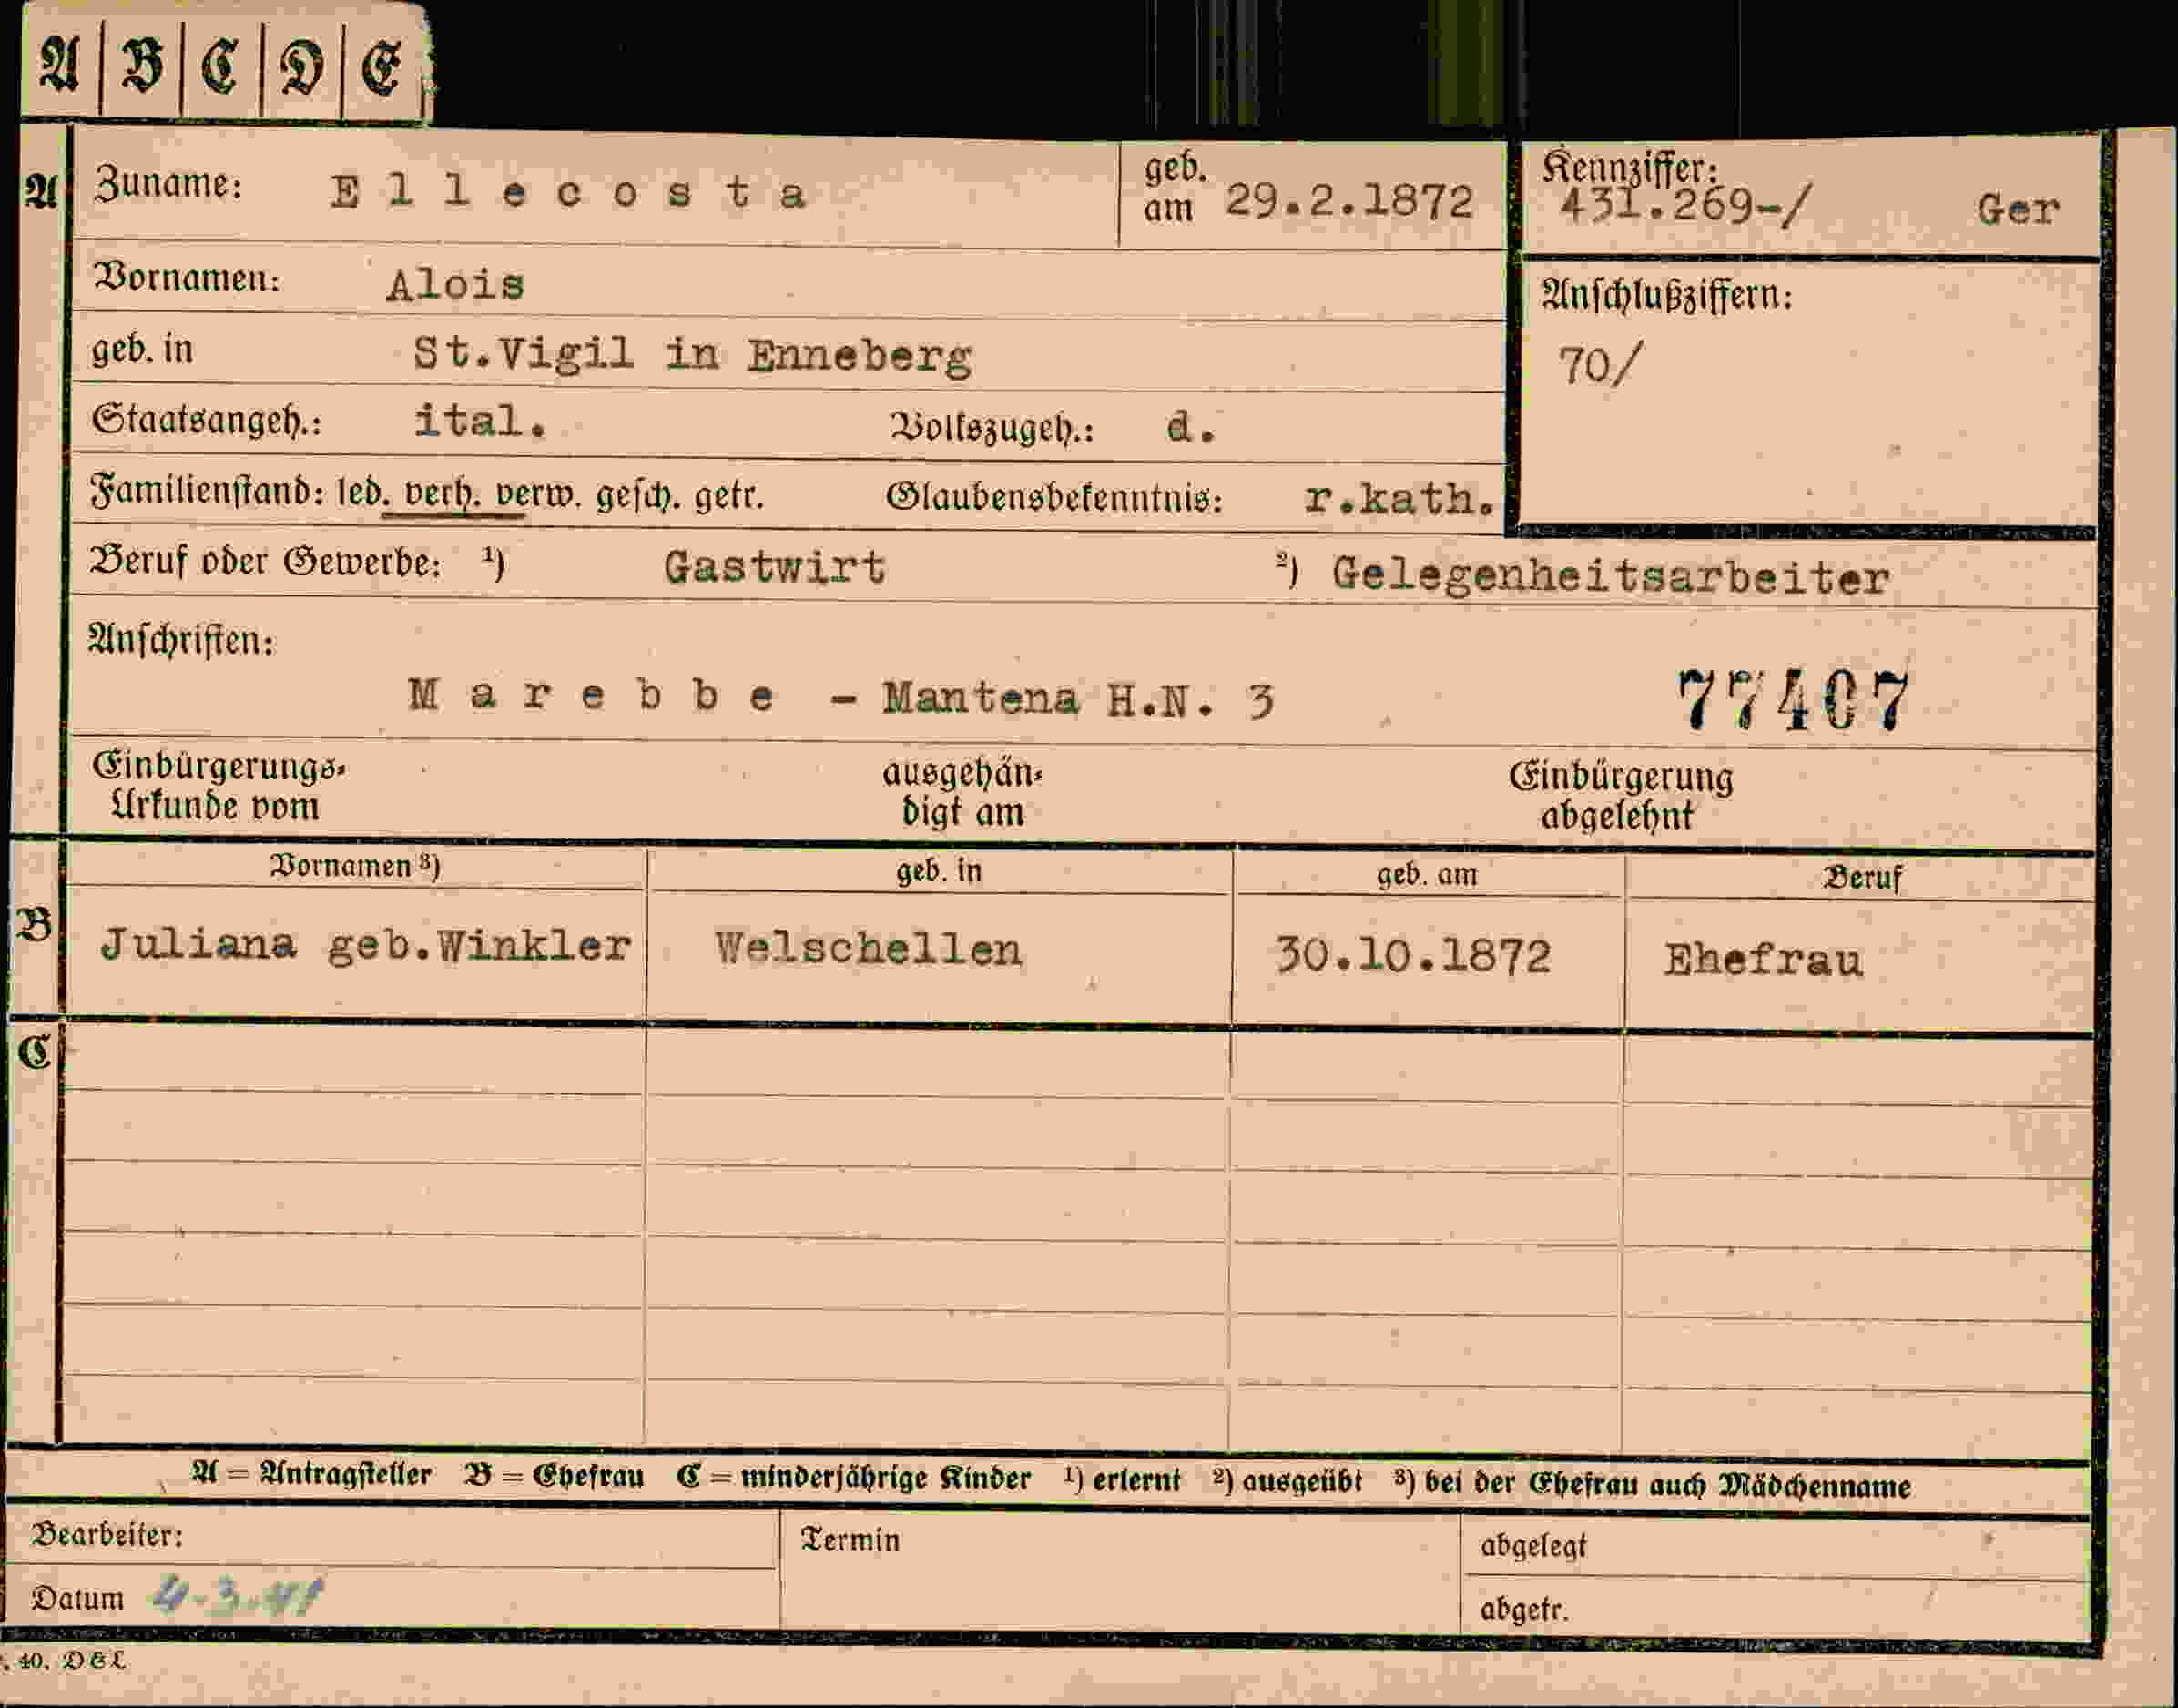 A B C D E
A Zuname: Ellecosta geb. am 29.2.1872 Kennziffer: 431.269-/ Ger
Vornamen: Alois Anschlußziffern:
geb. in St.Vigil in Enneberg 70/
Staatsangeh.: ital. Volkszugeh.: d.
Familienstand: led. verh. verw. gesch. getr. Glaubensbekenntnis: r.kath.
Beruf oder Gewerbe: ¹) Gastwirt ²) Gelegenheitsarbeiter
Anschriften:
Marebbe - Mantena H.N. 3 77407
Einbürgerungs- ausgehän- Einbürgerung
Urkunde vom digt am abgelehnt
Vornamen ³) geb. in geb. am Beruf
B Juliana geb.Winkler Welschellen 30.10.1872 Ehefrau
C
A = Antragsteller B = Ehefrau C = minderjährige Kinder ¹) erlernt ²) ausgeübt ³) bei der Ehefrau auch Mädchenname
Bearbeiter: Termin abgelegt
Datum 4-3.41 abgetr.
. 40. D&L